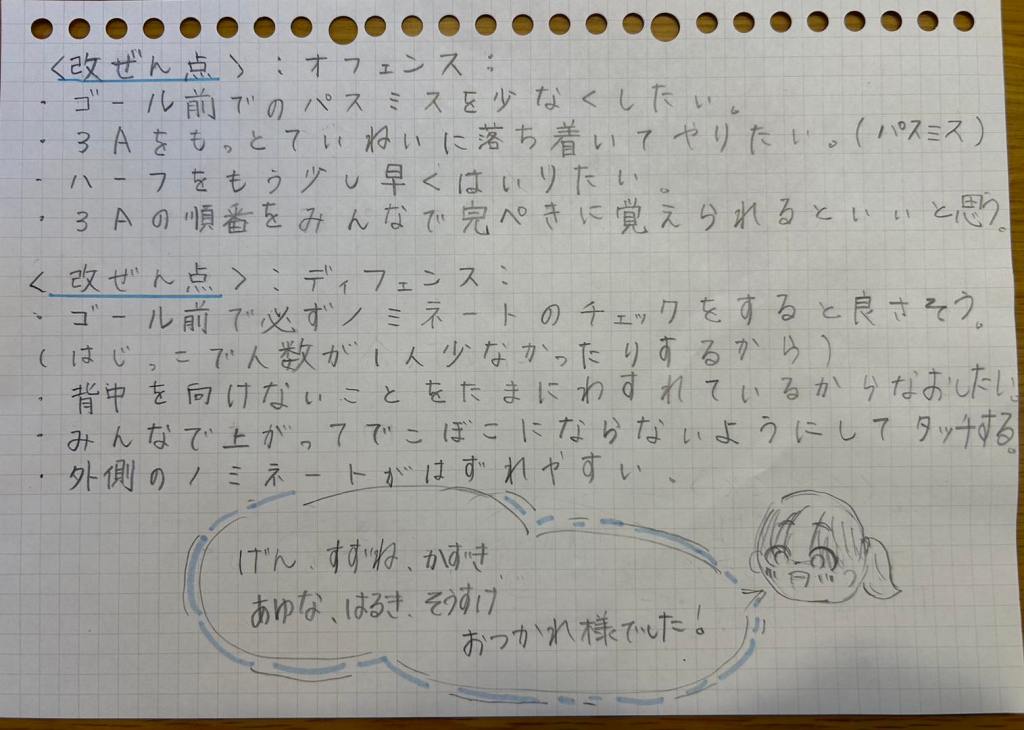 <改ぜん点>：オフェンス：
・ゴール前でのパスミスを少なくしたい。
・3Aをもっとていねいに落ち着いてやりたい。(パスミス)
・ハーフをもう少し早くはいりたい。
・3Aの順番をみんなで完ぺきに覚えられるといいと思う。
<改ぜん点>：ディフェンス：
・ゴール前で必ずノミネートのチェックをすると良さそう。
(はじっこで人数が1人少なかったりするから)
・背中を向けないことをたまにわすれているからなおしたい。
・みんなで上がってでこぼこにならないようにしてタッチする。
・外側のノミネートがはずれやすい、
げん、すずね、かずき
あゆな、はるき、そうすけ
おつかれ様でした!